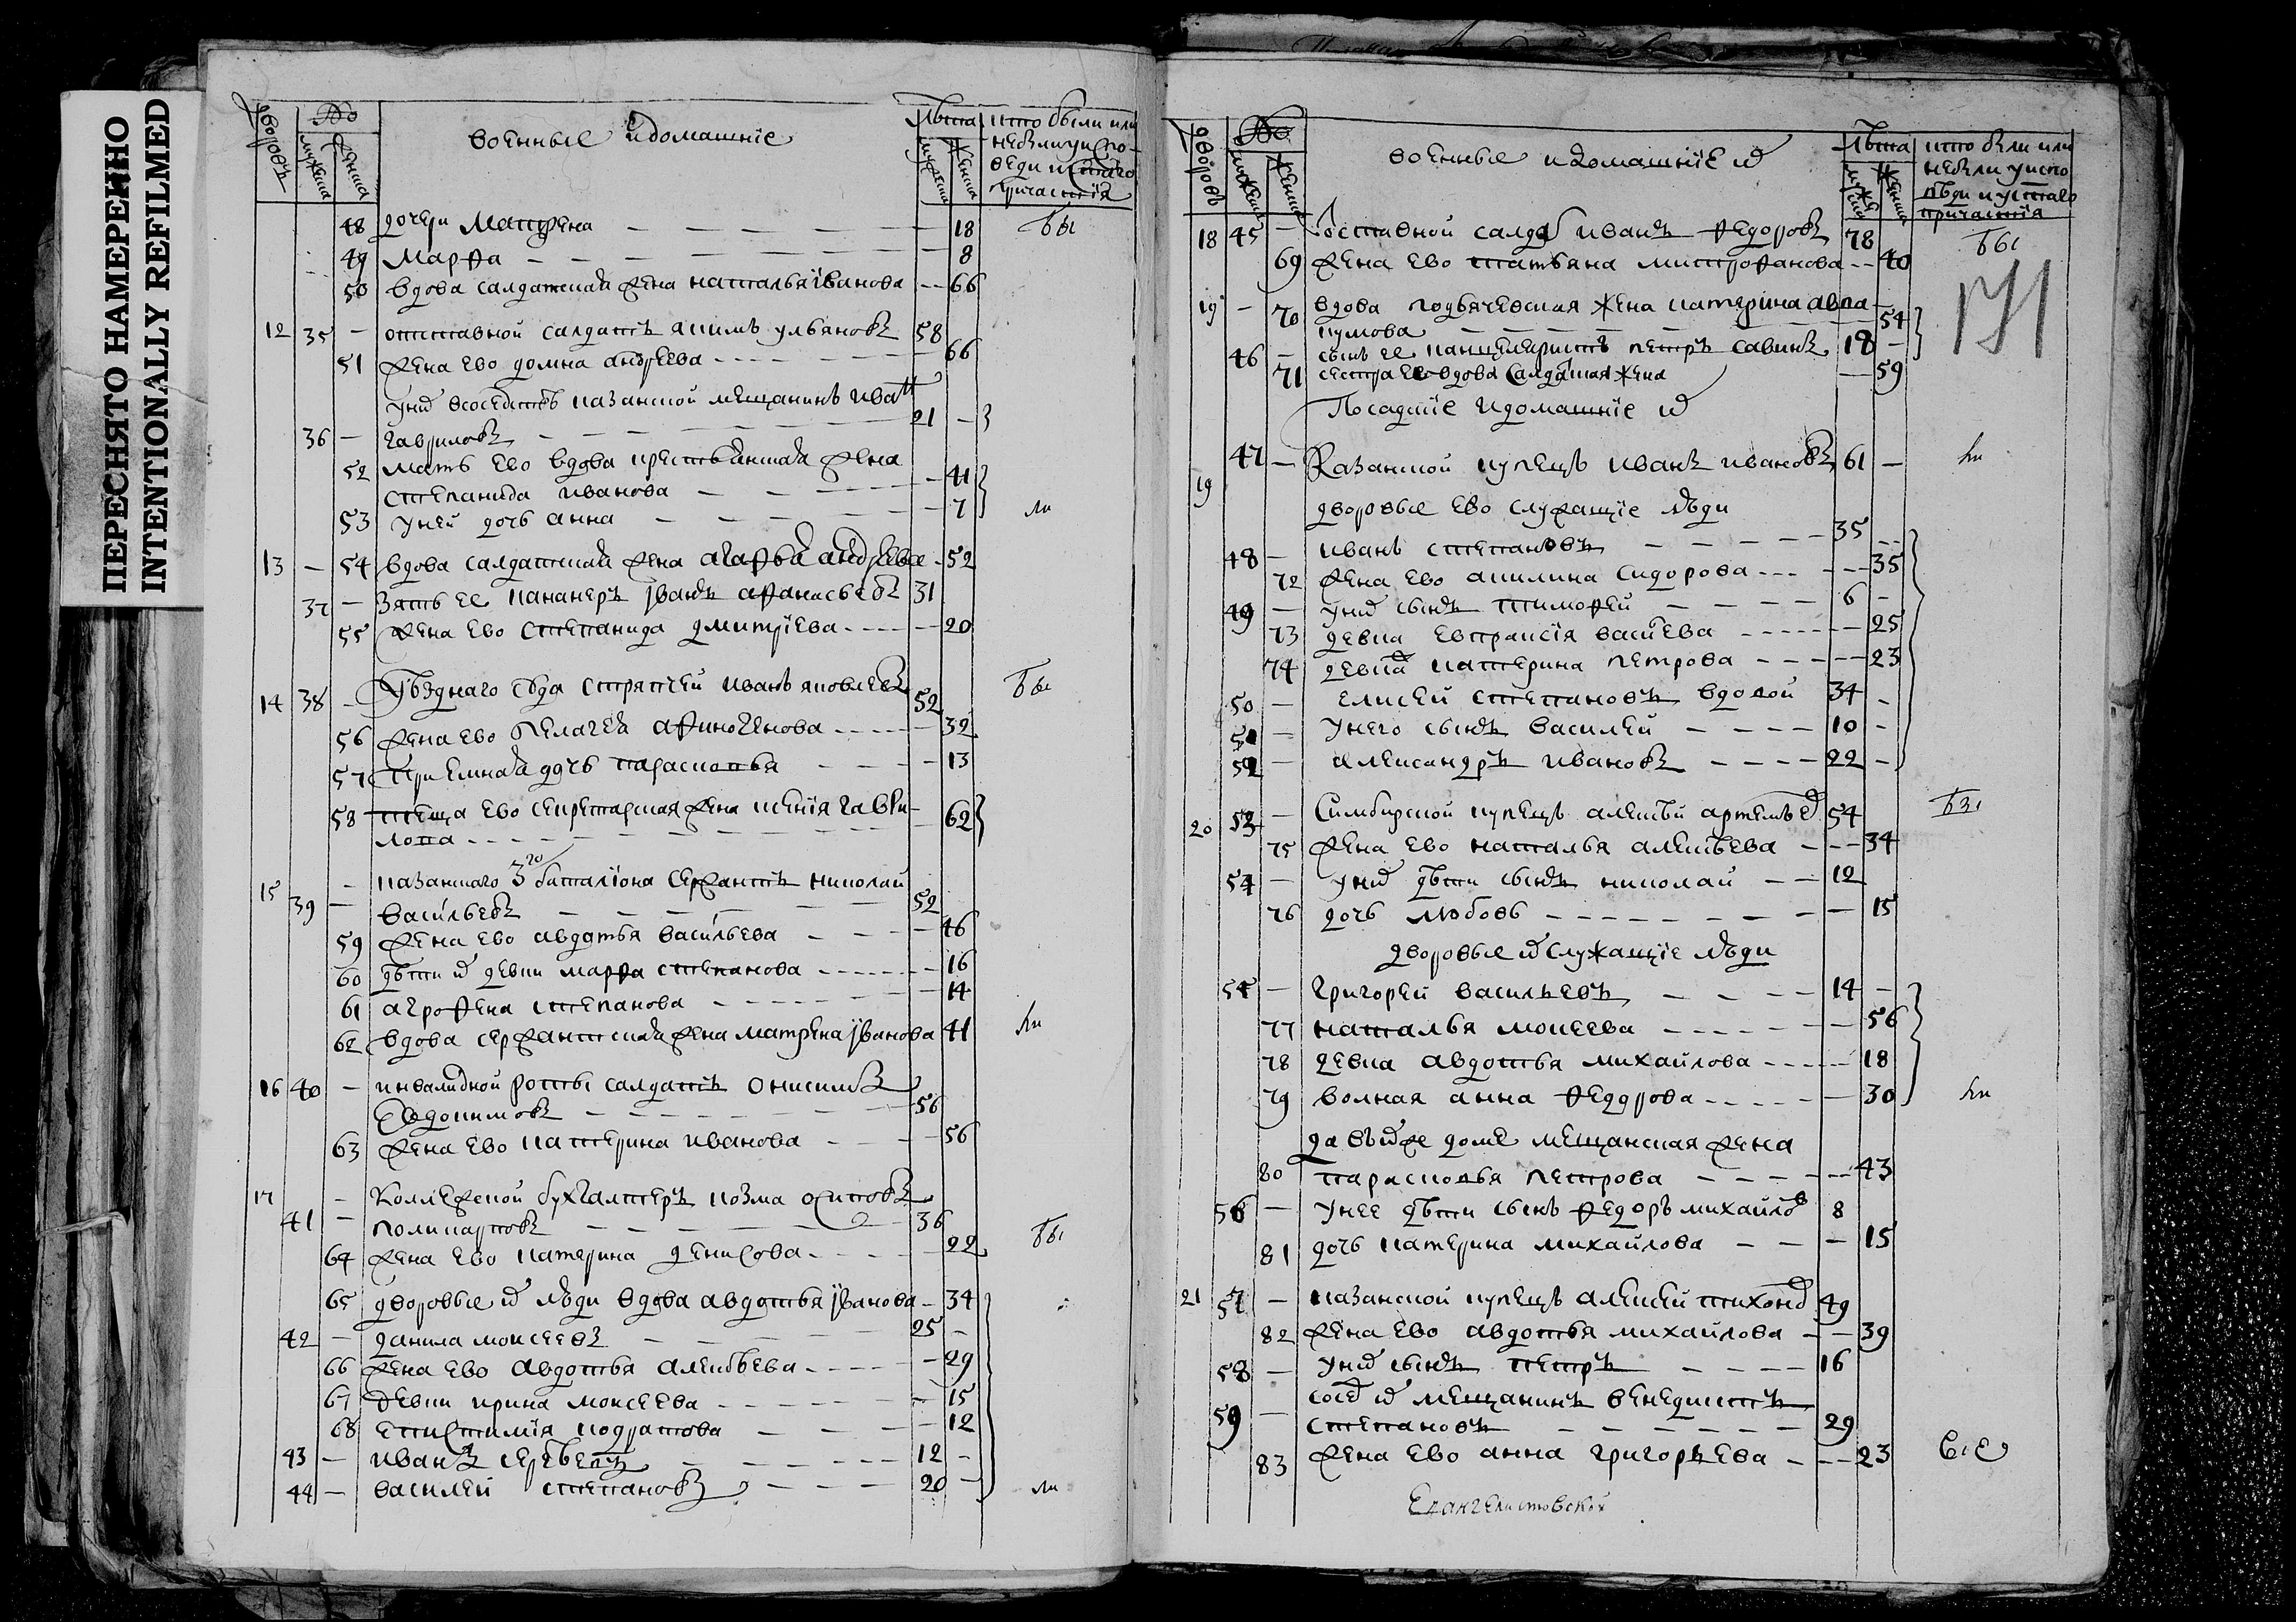 ПЕРЕСНЯТО НАМЕРЕННО
INTENTIONALLY REFILMED
дворовъ
No
мужеска
женска
военные и домашнїе
лѣта
мужеска
женска
кто были или
небыли у испо-
веди и святаго
причастїя
48 дочери матрена 18 бы
49 марфа 8
50 вдова салдатская жена наталья їванова 66
12 35 отставной салдатъ якимъ ульяновъ 58
51 жена ево домна андреева 66
у них в соседствѣ казанской мещанинъ иванъ
36 гавриловъ 21
52 мать ево вдова крестьянская жена
степанида иванова 41
53 у ней дочь анна 7 ли
13 54 вдова салдатская жена агафья андреева 52
37 зять ее канонеръ їванъ афанасьевъ 31
55 жена ево степанида дмитрїева 20
14 38 Уѣзднаго суда стряпчей иванъ яковлевъ 52 бы
56 жена ево пелагея афиногенова 32
57 приемная дочь парасковья 13
58 теща ево секретарская жена ксенїя гаври-
лова 62
15 казанскаго 3го баталїона сержантъ николай
39 васильевъ 52
59 жена ево авдотья васильева 46
60 дѣти их девки марфа степанова 16
61 аграфена степанова 14
62 вдова сержантская жена матрена їванова 41 ли
16 40 инвалидной роты салдатъ онисимъ
Евдокимовъ 56
63 жена ево катерина иванова 56
17 Коллежской бухгалтеръ козма осиповъ
41 поликарповъ 36
64 жена ево катерина денисова 22 бы
65 дворовые их люди вдова авдотья їванова 34
42 данила моисеевъ 25
66 жена ево авдотья алексѣева 29
67 девки ирина моисеева 15
68 епистимїя кодратова 12
43 иванъ 12
44 василей степановъ 20 ли
дворовъ
No
мужеска
женска
военные и домашнїе их
лѣта
мужеска
женска
кто были или
небыли у испо
вѣди и у святаго
причастїя
18 45 Отставной салдат иванъ федоровъ 78 бы
69 жена ево татьяна митрофанова 40
19 70 вдова подьяческая жена катерина авва-
кумова 54
46 сынъ ее канцеляристъ петръ савинъ 18
71 сестра ее вдова салдатская жена 59
Посадскїе и домашнїе их
19 47 Казанской купецъ иванъ ивановъ 61 ли
дворовые ево служащїе люди
48 иванъ степановъ 35
72 жена ево акилина сидорова 35
49 у них сынъ тимофей 6
73 девка евпраксїя васильева 25
74 девка катерина петрова 23
50 елисей степановъ вдовой 34
51 у него сынъ василей 10
52 александръ ивановъ 22
20 53 Симбирской купецъ алексѣй артемьев 54 бы
75 жена ево наталья алексѣева 34
54 у них дѣти сынъ николай 12
76 дочь любовь 15
дворовые их служащїе люди
55 григорей васильевъ 14
77 наталья моисеева 56
78 девка авдотья михайлова 18
79 волная анна федорова 30 ли
да въ их же доме мещанская жена
80 парасковья петрова 43
56 у нее дѣти сынъ федоръ михайлов 8
81 дочь катерина михайлова 15
21 57 казанской купецъ алексей тихонов 49
82 жена ево авдотья михайлова 39
58 у них сынъ петръ 16
сосед их мещанинъ венедиктъ
59 степановъ 29
83 жена ево анна григорьева 23
Евангелистовской